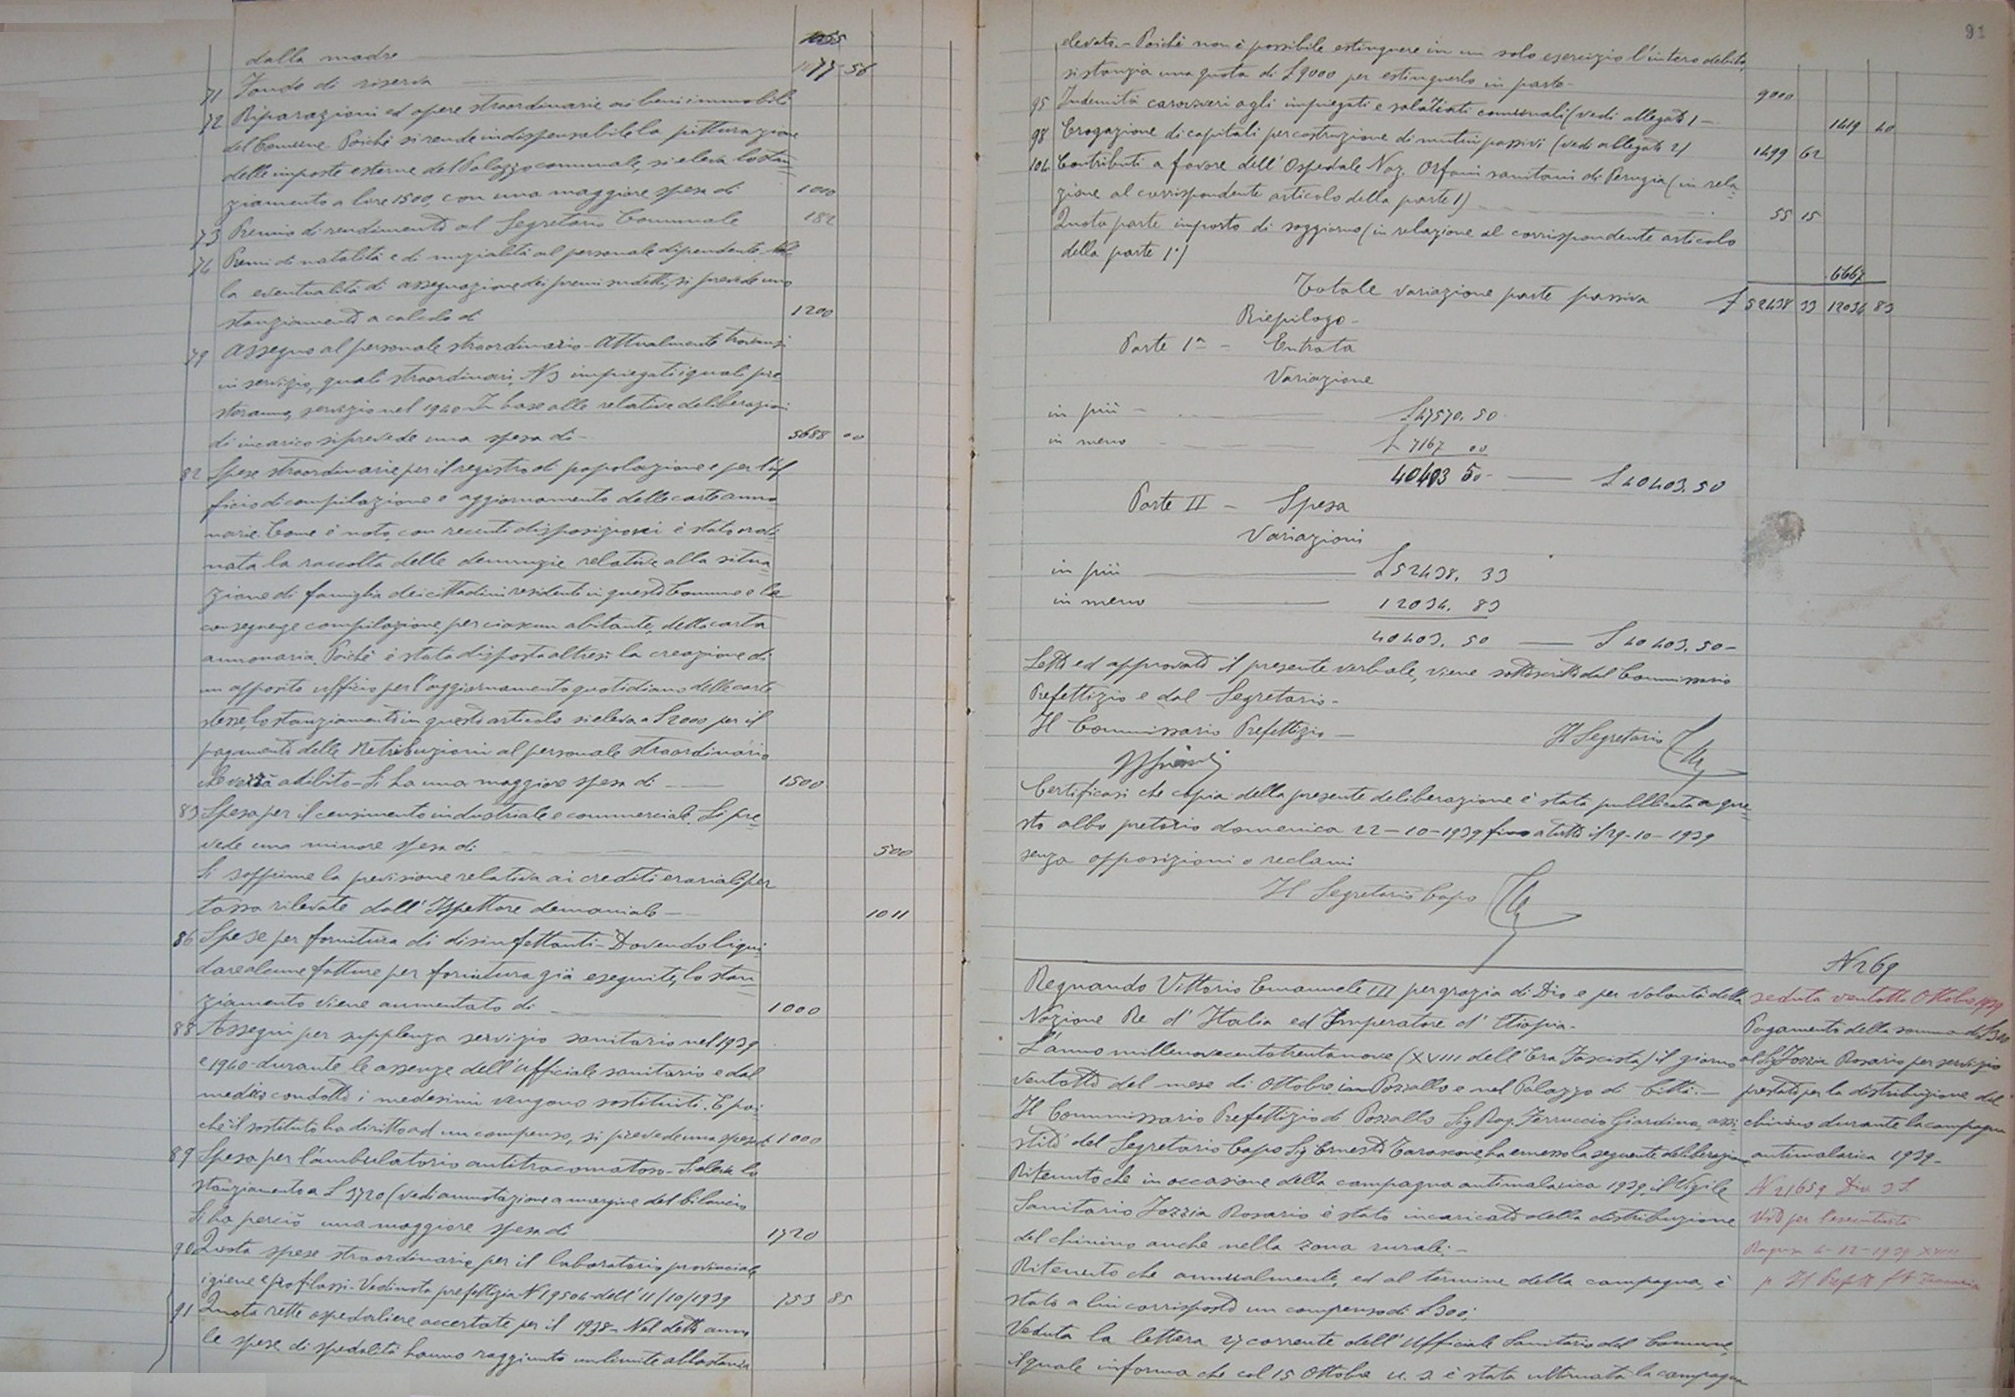 dalla madre
71 Fondo di riserva 1077 56
72 Riparazioni ed opere straordinarie ai beni immobili
del Comune Poichè si rende indispensabile la pitturazione
delle imposte esterne del Palazzo comunale, si eleva lo stan=
ziamento a lire 1500, con una maggiore spesa di 1000
73 Premio di rendimento al Segretario Comunale 182
74 Premi di natalità e di nuzialità al personale dipendente
la eventualità di assegnazione dei premi sudetti, si prevede uno
stanziamento a calcolo di 1200
79 Assegno al personale straordinario - Attualmente trovansi
in servizio, quali straordinari, N 3 impiegati i quali pre=
steranno servizio nel 1940 In base alle relative deliberazioni
di incarico si prevede una spesa di - 5688 00
82 Spese straordinarie per il registro di popolazione e per l'uf
ficio di compilazione e aggiornamento delle carte anno
narie. Come è noto, con recenti disposizioni è stata ordi
nata la raccolta delle denunzie relative alla situa=
zione di famiglia dei cittadini residenti in questo Comune e la
conseguenze compilazione, per ciascun abitante, della carta
annonaria. Poichè è stata disposta altresì la creazione di
un apposito ufficio per l'aggiornamento quotidiano delle carte
stesse, lo stanziamento in questo articolo si eleva a £ 2000 per il
pagamento delle Retribuzioni al personale straordinario
che verrà adibito - Si ha una maggiore spesa di 1500
83 Spesa per il censimento industriale e commerciale. Si pre=
vede una minore spesa di 500
Si sopprime la previsione relativa ai crediti erariali per
tassa rilevate dall'Ispettore demaniale - 1011
86 Spese per fornitura di disinfettanti - Dovendo liqui=
dare alcune fatture per fornitura già eseguite, lo stan=
ziamento viene aumentato di 1000
88 Assegni per supplenza servizio sanitario nel 1939
e 1940 - durante le assenze dell'ufficiale sanitario e dal
medico condotto i medesimi vengono sostituiti. E poi
chè il sostituto ha diritto ad un compenso, si prevede una spesa di 1000
89 Spesa per l'ambulatorio antitracomatoso - Si eleva lo
stanziamento a £ 3720 (vedi annotazione a margine del bilancio
Si ha perciò una maggiore spesa di 1720
90 Quota spese straordinarie per il laboratorio provinciale
igiene e profilassi. Vedi nota prefettizia N 19504 dell'11/10/1939 753 85
91 Quota rette ospedaliere accertate per il 1938 - Nel detto anno
le spese di spedalità hanno raggiunto un limite abbastanza
91
elevato. - Poichè non è possibile estinguere in un solo esercizio l'intero debito,
si stanzia una quota di £ 9000 per estinguerlo in parte - 9000
95 Indennità caroviveri agli impiegati e salariati comunali (vedi allegato 1 - 1419 40
98 Erogazione di capitali per costruzione di mutui passivi (vedi allegato 2) 1499 62
104 Contributi a favore dell'Ospedale Naz. Orfani sanitari di Perugia (in rela=
zione al corrispondente articolo della parte 1) 55 15
Quota parte imposta di soggiorno (in relazione al corrispondente articolo
della parte 1ª) 6667
Totale variazione parte passiva £ 52438 33 12034 83
Riepilogo -
Parte 1ª - Entrata
Variazione
in più - £ 47570. 50
in meno £ 7167 00
40403 50 - £ 40403. 50
Parte II - Spesa
Variazioni
in più £ 52438. 33
in meno 12034. 83
40403. 50 £ 40403. 50 -
Letto ed approvato il presente verbale, viene sottoscritto dal Commissario
Prefettizio e dal Segretario -
Il Commissario Prefettizio - Il Segretario
Certificasi che copia della presente deliberazione è stata pubblicata a que=
sto albo pretorio domenica 22 - 10 - 1939 fino a tutto il 29 - 10 - 1939
senza opposizioni o reclami
Il Segretario Capo
N 269
seduta ventotto Ottobre 1939
Pagamento della somma di £ 300
al Sig Iozzia Rosario per servizio
prestato per la distribuzione del
chinino durante la campagna
antimalarica 1939 -
N 21659 Div 3 S.
Visto per l'esecutività
Ragusa 4 - 12 - 1939 XVIII
p. Il Prefetto
Regnando Vittorio Emanuele III per grazia di Dio e per volontà della
Nazione Re d'Italia ed Imperatore d'Etiopia -
L'anno millenovecentotrentanove (XVIII dell'Era Fascista) il giorno
ventotto del mese di Ottobre in Pozzallo e nel Palazzo di Città. -
Il Commissario Prefettizio di Pozzallo Sig Rag. Ferruccio Giardina, assi
stito del Segretario Capo Sig Ernesto Tarascone, ha emesso la seguente deliberazione
Ritenuto che in occasione della campagna antimalarica 1939, il Vigile
Sanitario Iozzia Rosario è stato incaricato della distribuzione
del chinino anche nella zona rurale: -
Ritenuto che annualmente, ed al termine della campagna, è
stato a lui corrisposto un compenso di £ 300;
Veduta la lettera 27 corrente dell'Ufficiale Sanitario del Comune,
il quale informa che col 15 Ottobre u. s. è stata ultimata la campagna